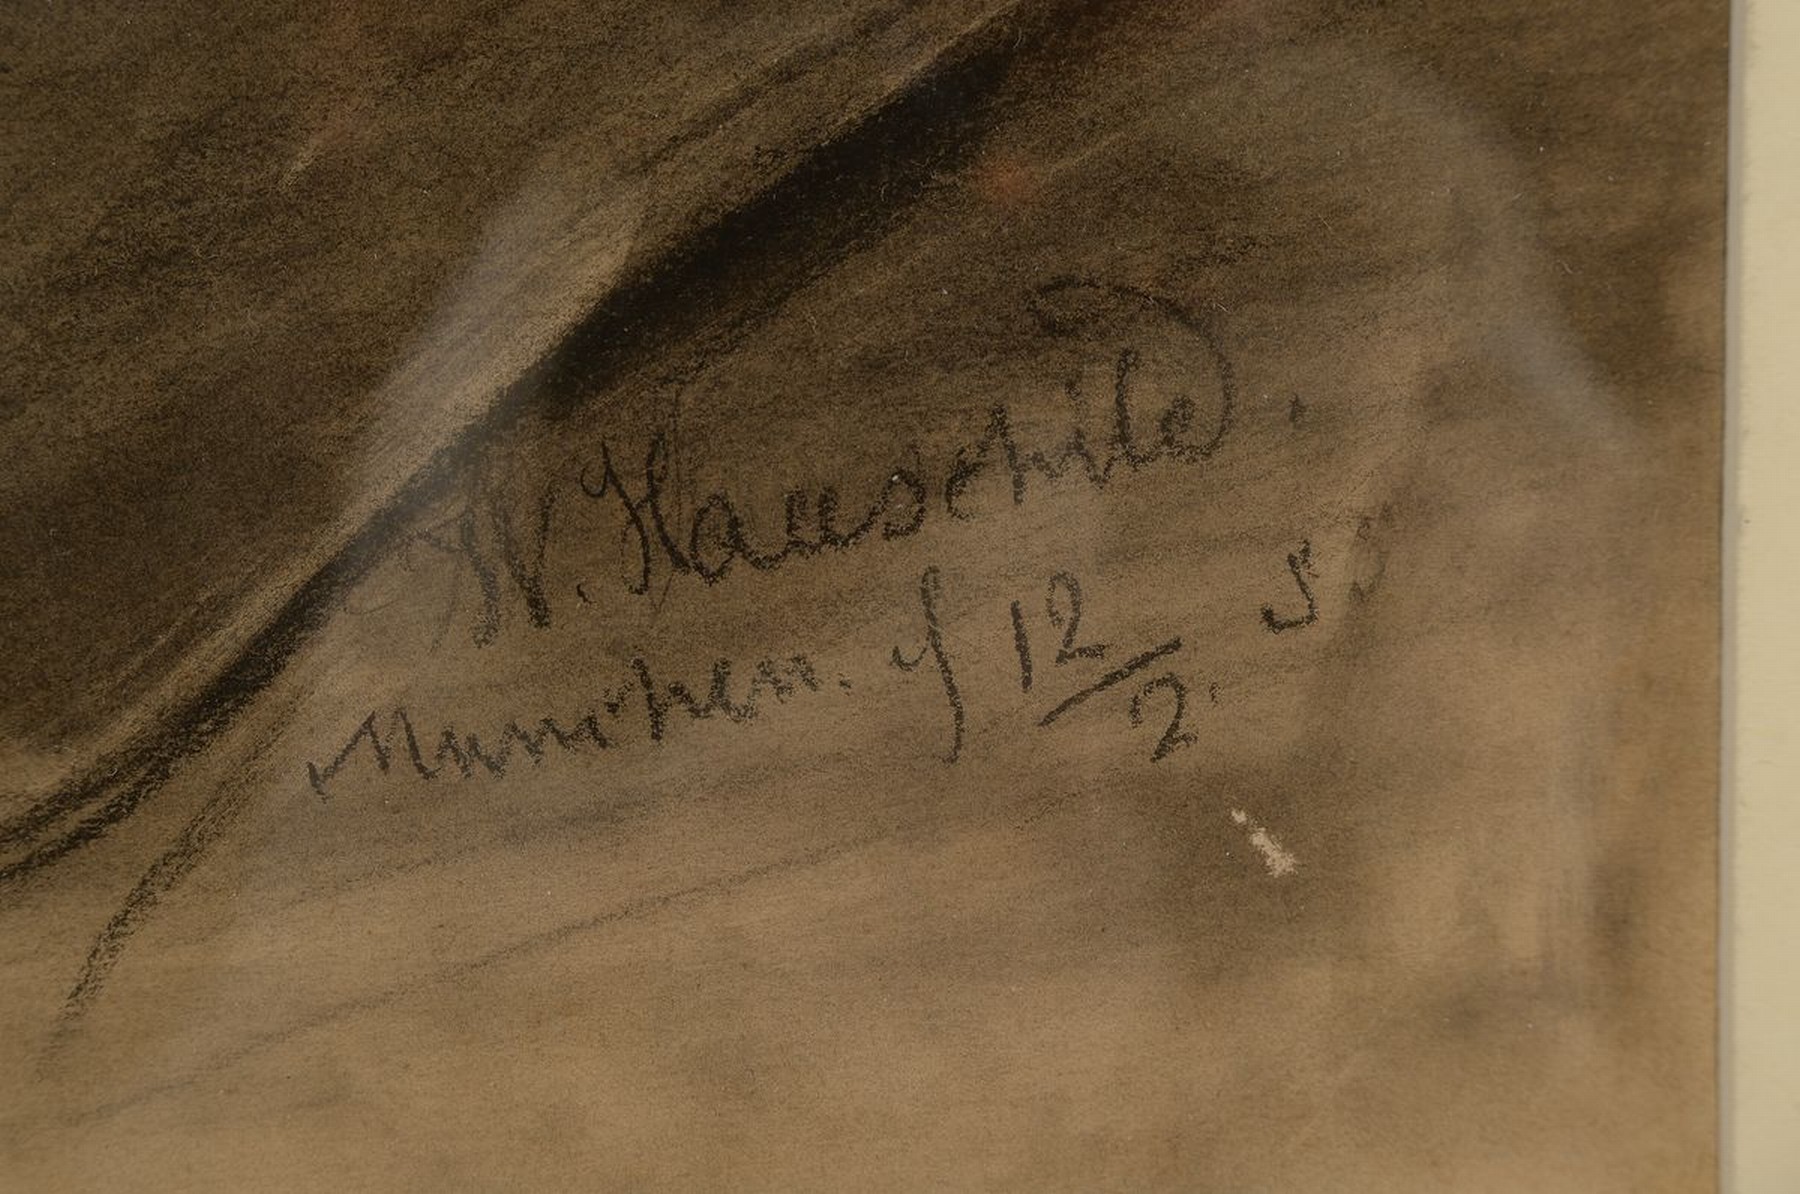 W. Hauschild.
München. 12/2.